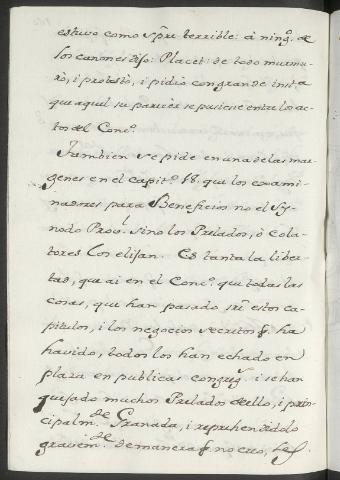 estuvo como sp̃re terrible: à ning.º de
los canones dijo: Placet: de todo murmu-
rò, i protestò, i pidiò con grande inst.ª
que aquel su parecer se pusiese entre los ac-
tos del Conc.º
Tambien se pide en una de las mar-
genes en el capit.º 18. que los exami-
nadores para Beneficios no el Sy-
nodo Prov.l sino los Prelados, ò cola-
tores los elijan. Es tanta la liber-
tad, que ai en el Conc.º que todas las
cosas, que han pasado en estos ca-
pitulos, i los negocios secretos q. ha
havido, todos los han echado en
plaza en publicas congreg.s i se han
quejado muchos Prelados dello, i prin-
cipalm.te Granada, i reprehendidolo
gravem.te de manera q. no creo,